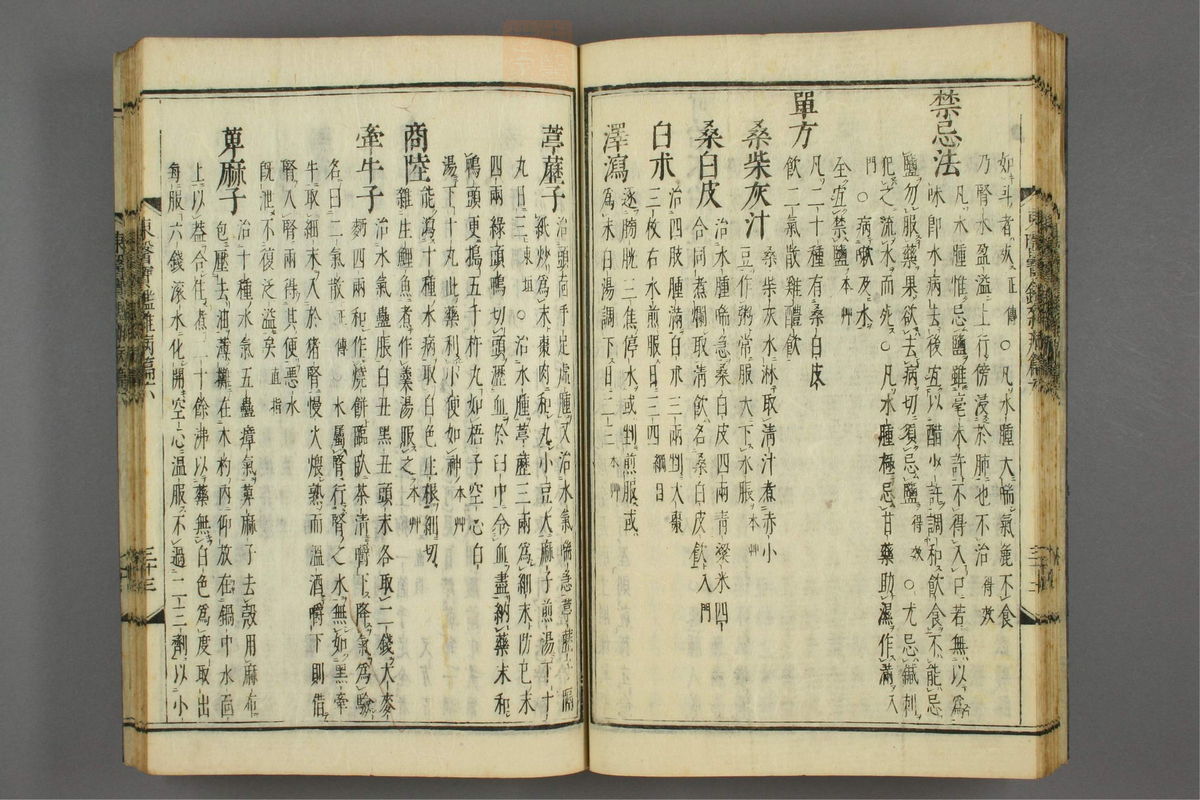 如斗者必死 正傳 ○凡水腫大喘氣麄不食
乃腎水盈溢上行傍浸於肺也不治 得效
禁忌法
凡水腫惟忌鹽雖毫末許不得入口若無以爲
味卽水病去後宜以醋少許調和飲食不能忌
鹽勿服藥果欲去病切須忌鹽 得效 ○尤忌鍼刺
犯之流水而死○凡水腫極忌甘藥助濕作滿 入
門 ○病嗽及水
全宜禁鹽 本艸
單方
凡二十種有桑白皮
飲二氣散雞醴飲
桑柴灰汁
桑柴灰水淋取清汁煮赤小
豆作粥常服大下水脹 本艸
桑白皮
治水腫喘急桑白皮四兩青粱米四
合同煮爛取清飲名桑白皮飲 入門
白朮
治四肢腫滿白朮三兩剉大棗
三枚右水煎服日三四 綱目
澤瀉
逐膀胱三焦停水或剉煎服或
爲末白湯調下日二三 本艸
葶藶子
治頭面手足虛腫又治水氣喘急葶藶隔
紙炒爲末棗肉和丸小豆大麻子煎湯下十
丸日三 東垣 ○治水腫葶藶三兩爲細末防巳末
四兩綠頭鴨切頭瀝血於臼中令血盡納藥末和
鴨頭更搗五千杵丸如梧子空心白
湯下十丸此藥利小便如神 本艸
商陸
能瀉十種水病取白色生根細切
雜生鯉魚煮作羹湯服之 本艸
牽牛子
治水氣蠱脹白丑黑丑頭末各取二錢大麥
麪四兩和作燒餅臨臥茶清嚼下降氣爲驗
名曰二氣散 正傳 水屬腎行腎之水無如黑牽
牛取細末入於猪腎慢火煨熟而溫酒嚼下則借
腎入腎兩得其便惡水
旣泄不復泛溢矣 直指
萆麻子
治十種水氣五蠱瘴氣萆麻子去殼用麻布
包壓去油薄攤在木杓內仰放在鍋中水面
上以葢合住煮二十餘沸以藥無白色爲度取出
每服六錢滾水化開空心溫服不過二三劑以小
東醫寶鑑雜病篇六
三十三